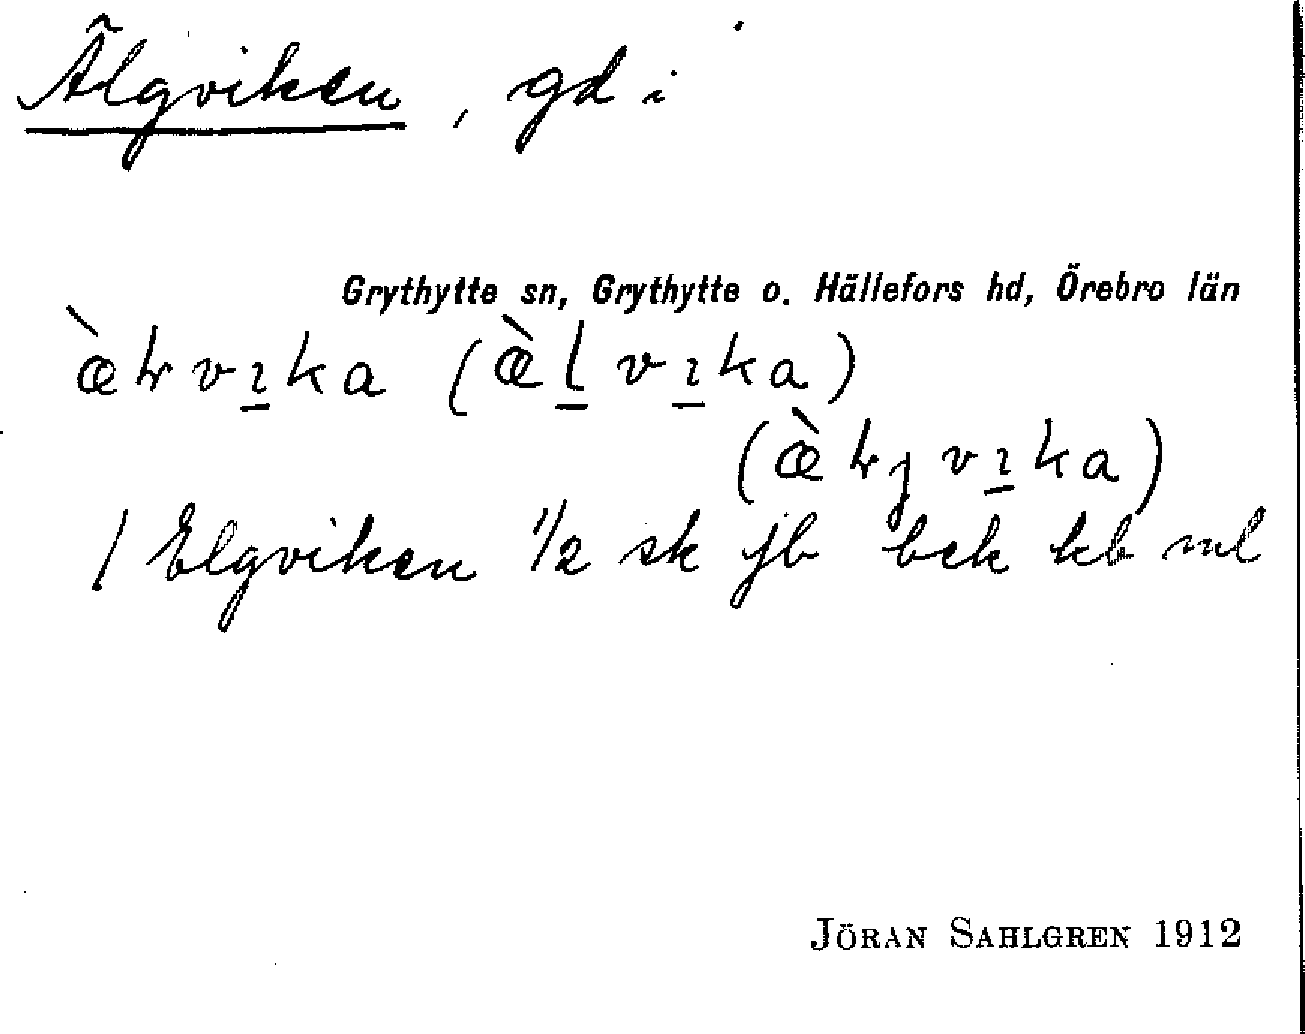 Älgviken, gd i
Grythytte sn, Grythytte o. Hällefors hd, Örebro län
œ̀ƚvı̲ka (œ̀l̲vı̲ka)
(œ̀ƚȷvı̲ka)
/ Elgviken 1/2 sk jb bek kb ml
JÖRAN SAHLGREN 1912